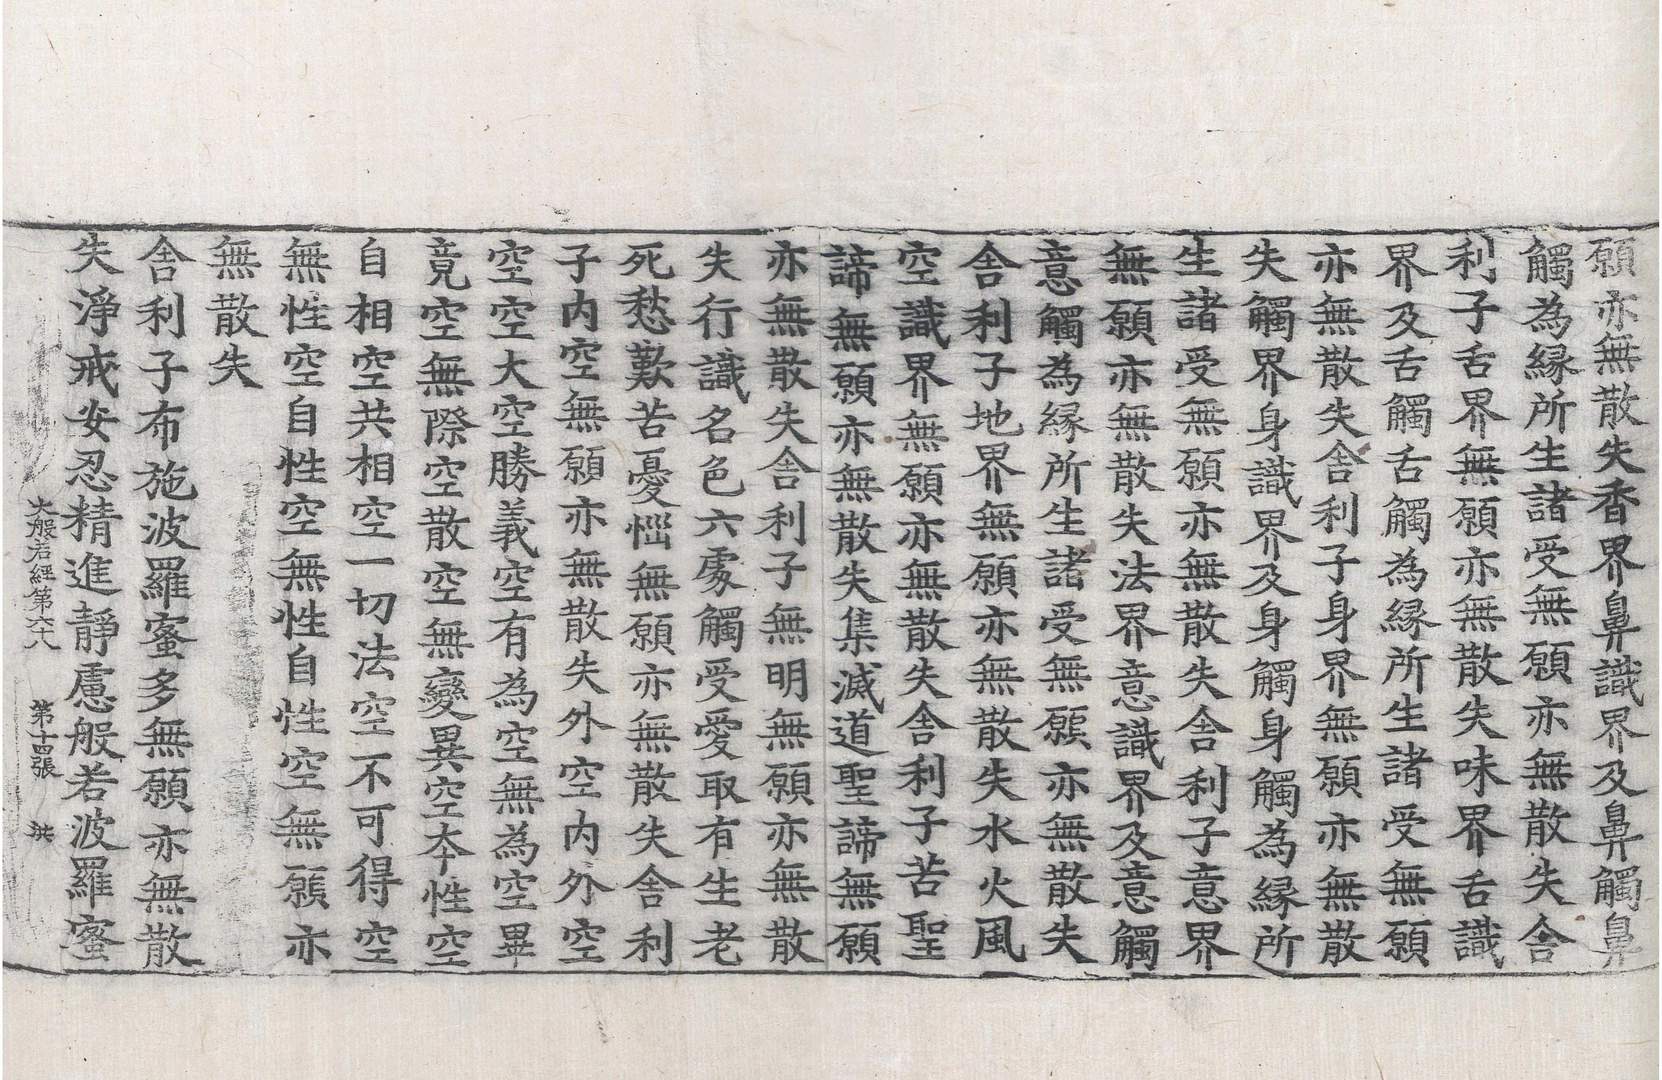 願亦無散失香界鼻識界及鼻觸鼻
觸為縁所生諸受無願亦無散失舎
利子舌界無願亦無散失味界舌識
界及舌觸舌觸為縁所生諸受無願
亦無散失舎利子身界無願亦無散
失觸界身識界及身觸身觸為縁所
生諸受無願亦無散失舎利子意界
無願亦無散失法界意識界及意觸
意觸為縁所生諸受無願亦無散失
舎利子地界無願亦無散失水火風
空識界無願亦無散失舎利子苦聖
諦無願亦無散失集滅道聖諦無願
亦無散失舎利子無明無願亦無散
失行識名色六處觸受愛取有生老
死愁歎苦憂惱無願亦無散失舎利
子内空無願亦無散失外空内外空
空空大空勝義空有為空無為空畢
竟空無際空散空無變異空本性空
自相空共相空一切法空不可得空
無性空自性空無性自性空無願亦
無散失
舎利子布施波羅蜜多無願亦無散
失淨戒安忍精進靜慮般若波羅蜜
大般若經第六十八 第十四張 洪